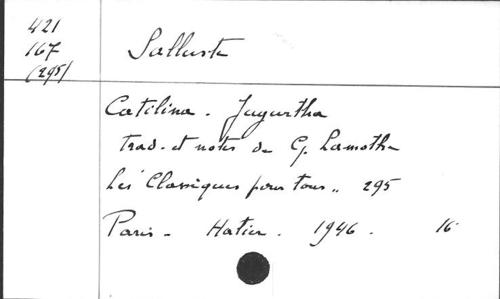 421
167
(295)
Salluste
Catilina. Jugurtha
Trad. et notes de G. Lamothe
Les "Classiques pour tous" 295
Paris - Hatier. 1946. 16